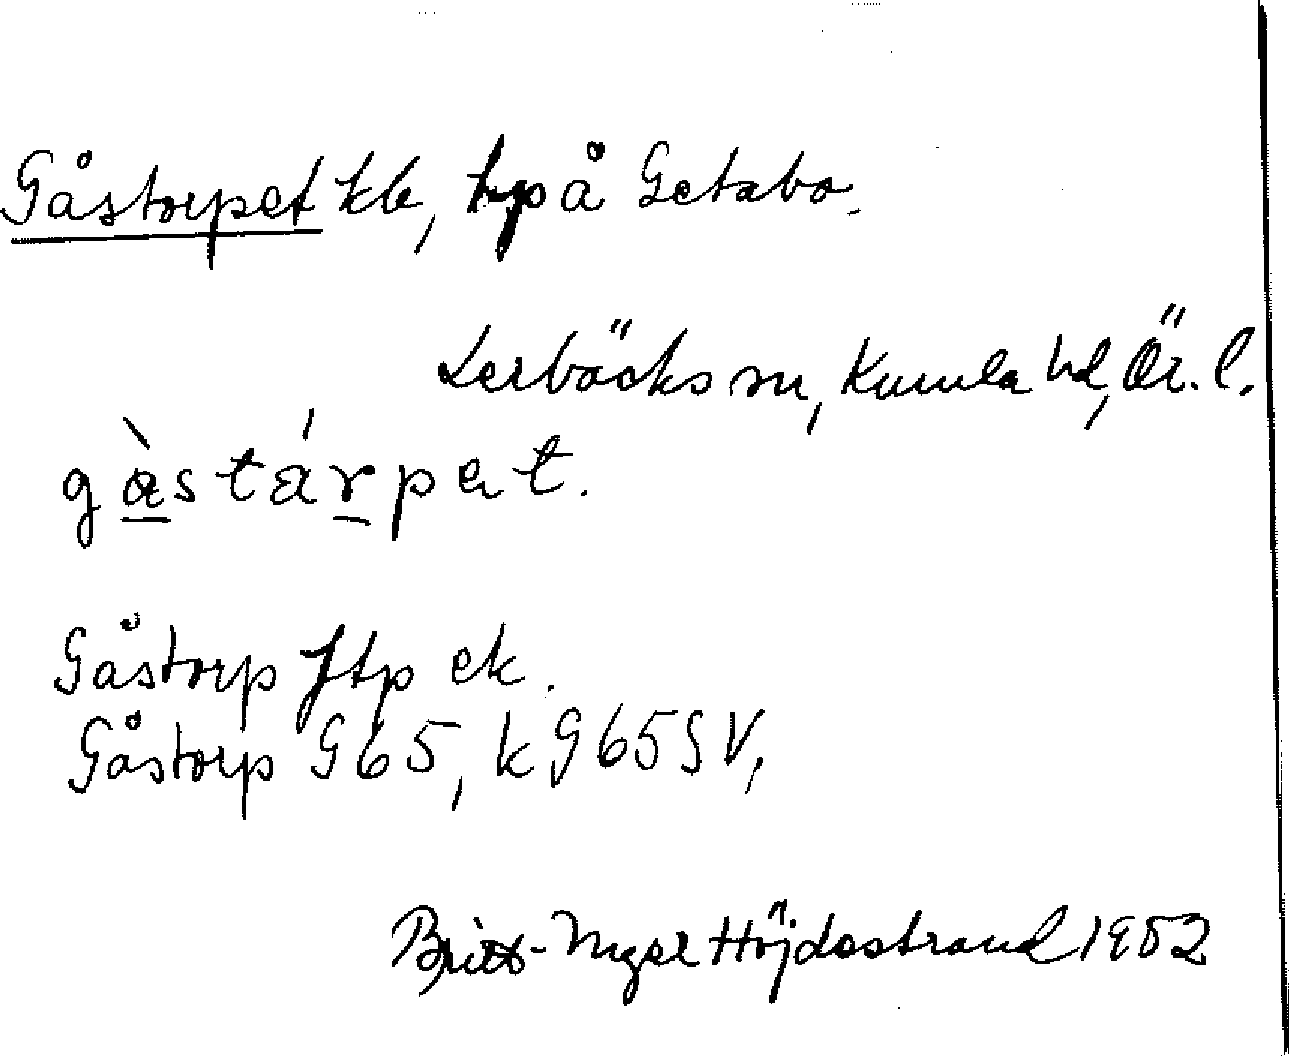 Gåstorpet kb, tp å Getabo.
Lerbäcks sn, Kumla hd, Ör. l.
gàstárpet.
Gåstorp Jtp ek.
Gåstorp G65, k G65SV,
Britt-Inger Höjdestrand 1952